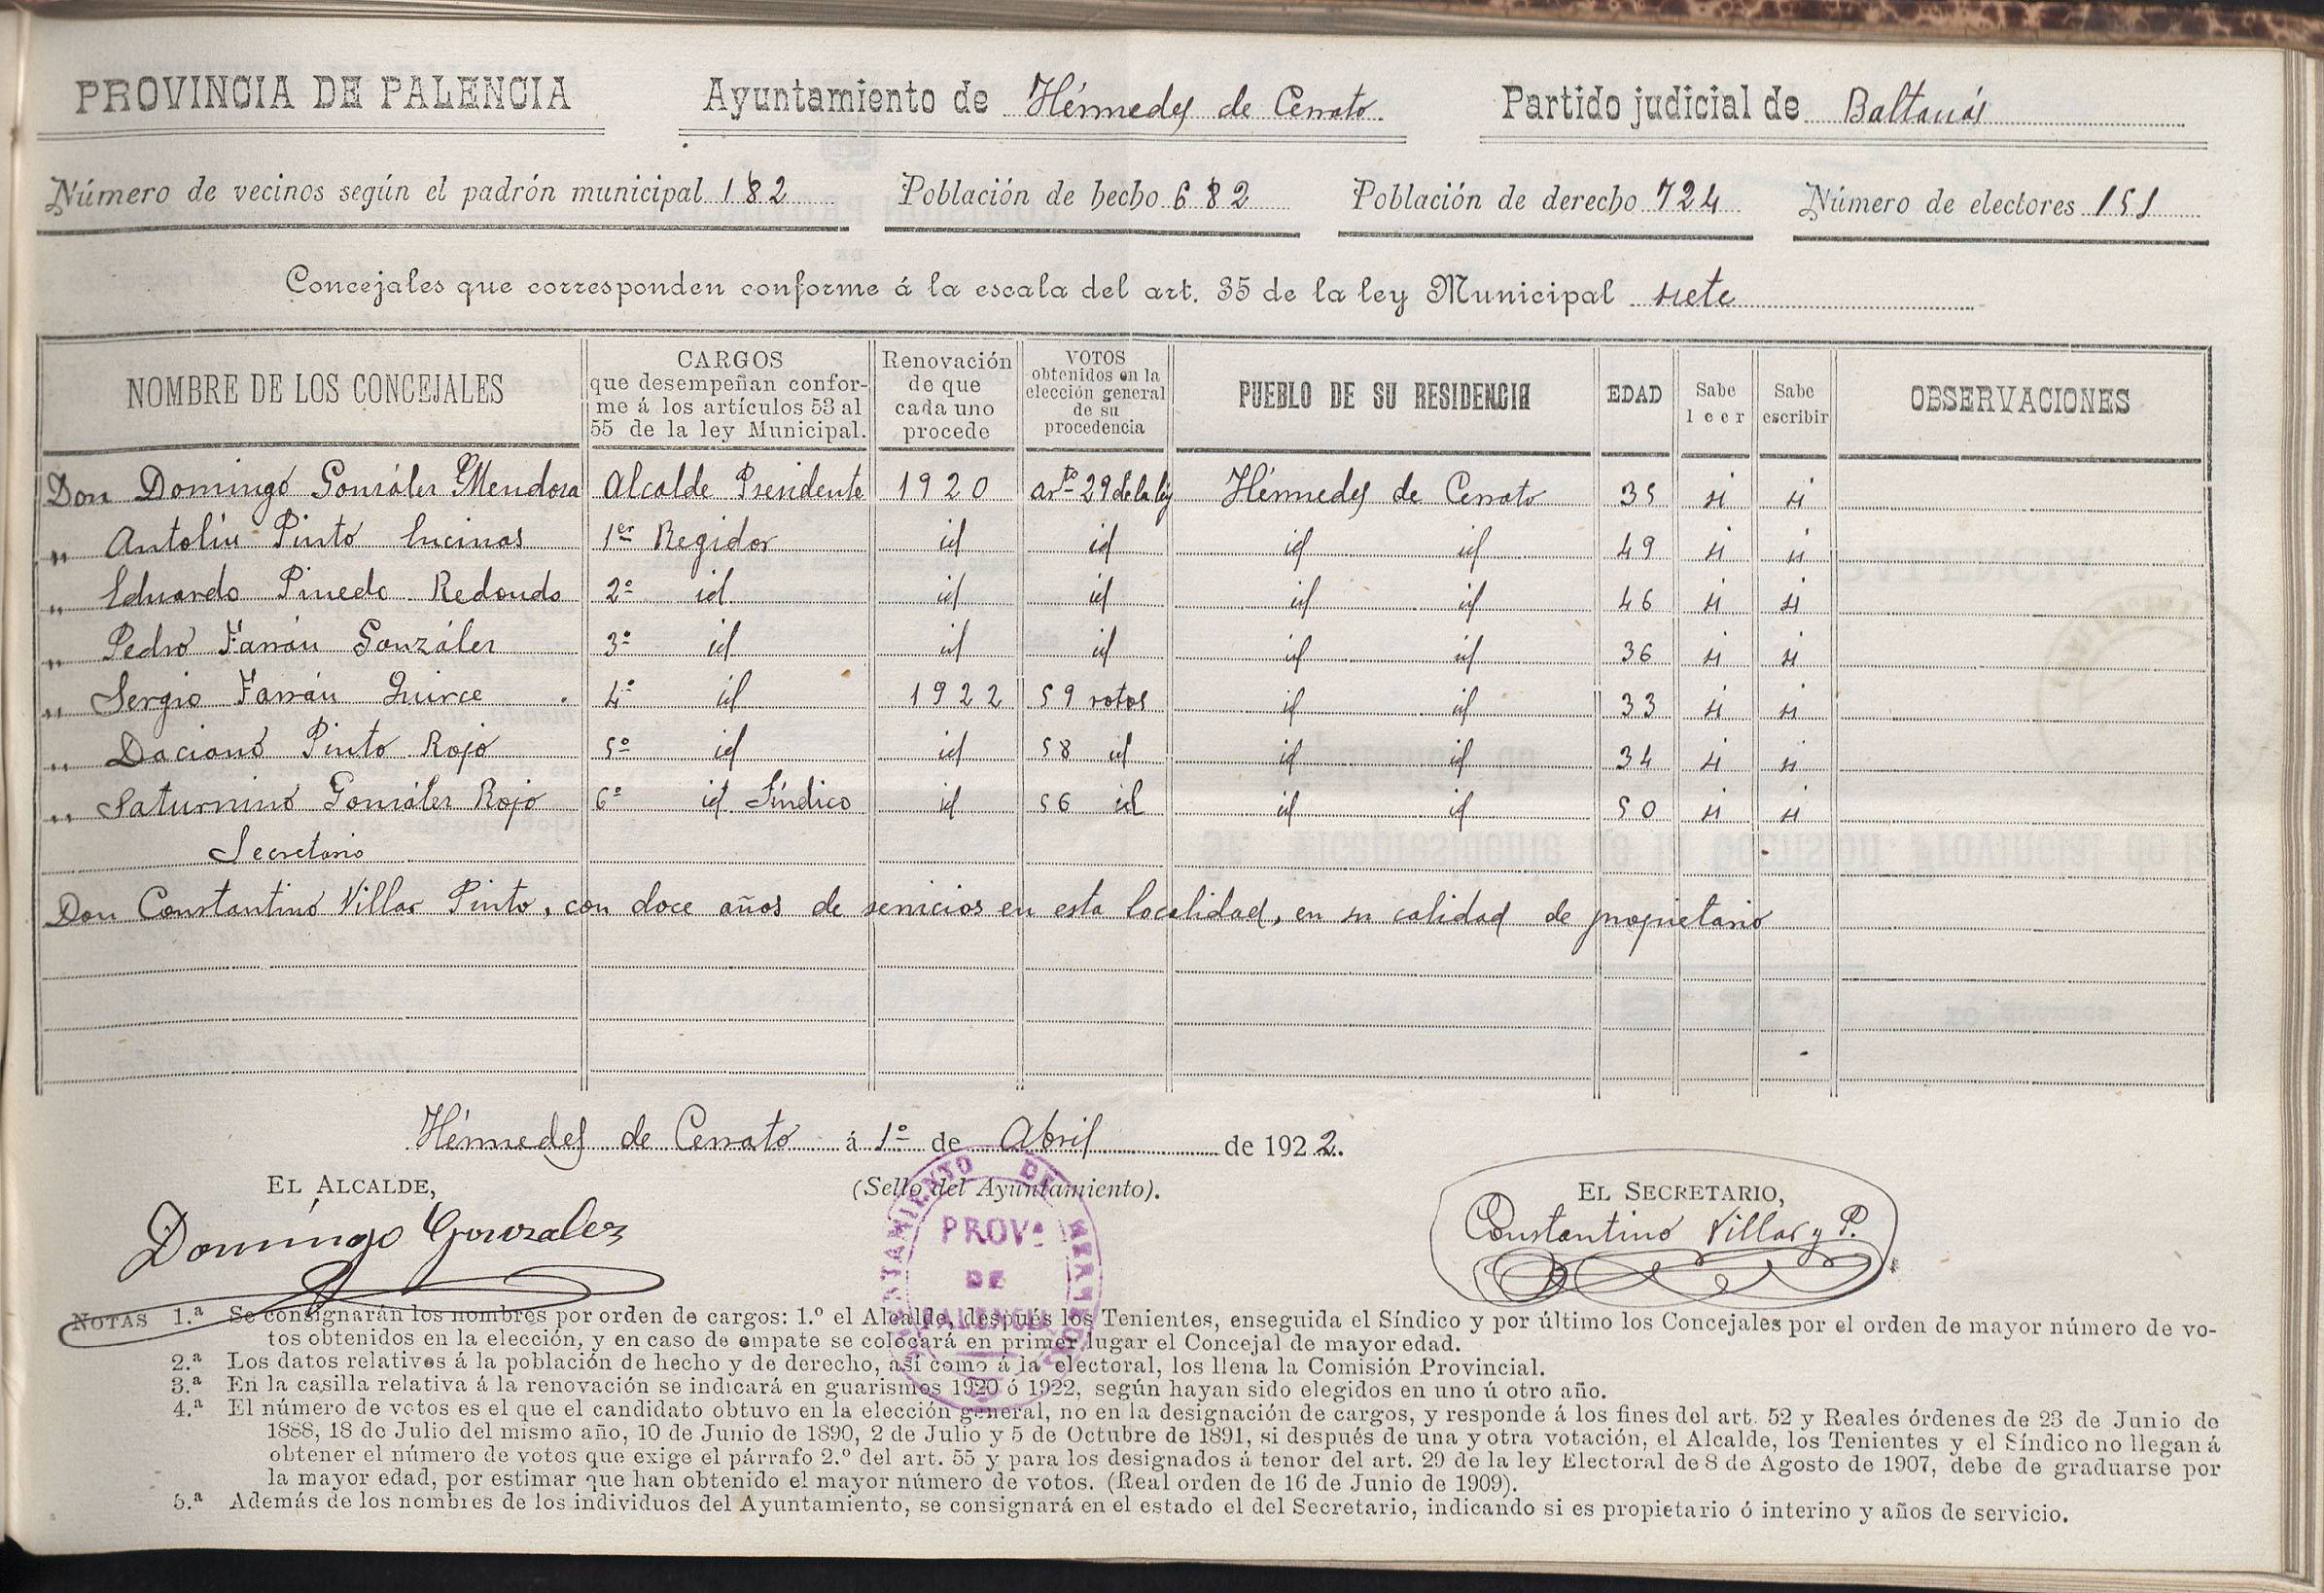 PROVINCIA DE PALENCIA Ayuntamiento de Hérmedes de Cerrato. Partido judicial de Baltanás
Número de vecinos según el padrón municipal 182 Población de hecho 682 Población de derecho 724 Número de electores 151
Concejales que corresponden conforme á la escala del art. 35 de la ley Municipal siete
NOMBRE DE LOS CONCEJALES
CARGOS
que desempeñan confor-
me á los artículos 53 al
55 de la ley Municipal.
Renovación
de que
cada uno
procede
VOTOS
obtenidos en la
elección general
de su
procedencia
PUEBLO DE SU RESIDENCIA
EDAD
Sabe
leer
Sabe
escribir
OBSERVACIONES
Don Domingo González Mendoza Alcalde Presidente 1920 arto 29 de la ley Hérmedes de Cerrato 35 si si
" Antolín Pinto Encinas 1er Regidor id id id id 49 si si
" Eduardo Pinedo Redondo 2º id id id id id 46 si si
" Pedro Farrán González 3º id id id id id 36 si si
" Sergio Farrán Quirce 4º id 1922 59 votos id id 33 si si
" Daciano Pinto Rojo 5º id id 58 id id id 34 si si
" Saturnino González Rojo 6º id Síndico id 56 id id id 50 si si
Secretario
Don Constantino Villar Pinto, con doce años de servicios en esta localidad, en su calidad de propietario
Hérmedes de Cerrato á 1º de Abril de 1922.
EL ALCALDE, (Sello del Ayuntamiento). EL SECRETARIO,
Domingo Gonzalez
Constantino Villar y P.
AYUNTAMIENTO DE HERMEDES
PROVª
DE
PALENCIA
NOTAS 1.ª Se consignarán los nombres por orden de cargos: 1.º el Alcalde, después los Tenientes, enseguida el Síndico y por último los Concejales por el orden de mayor número de vo-
tos obtenidos en la elección, y en caso de empate se colocará en primer lugar el Concejal de mayor edad.
2.ª Los datos relativos á la población de hecho y de derecho, así como á la electoral, los llena la Comisión Provincial.
3.ª En la casilla relativa á la renovación se indicará en guarismos 1920 ó 1922, según hayan sido elegidos en uno ú otro año.
4.ª El número de votos es el que el candidato obtuvo en la elección general, no en la designación de cargos, y responde á los fines del art. 52 y Reales órdenes de 23 de Junio de
1888, 18 de Julio del mismo año, 10 de Junio de 1890, 2 de Julio y 5 de Octubre de 1891, si después de una y otra votación, el Alcalde, los Tenientes y el Síndico no llegan á
obtener el número de votos que exige el párrafo 2.º del art. 55 y para los designados á tenor del art. 29 de la ley Electoral de 8 de Agosto de 1907, debe de graduarse por
la mayor edad, por estimar que han obtenido el mayor número de votos. (Real orden de 16 de Junio de 1909).
5.ª Además de los nombres de los individuos del Ayuntamiento, se consignará en el estado el del Secretario, indicando si es propietario ó interino y años de servicio.